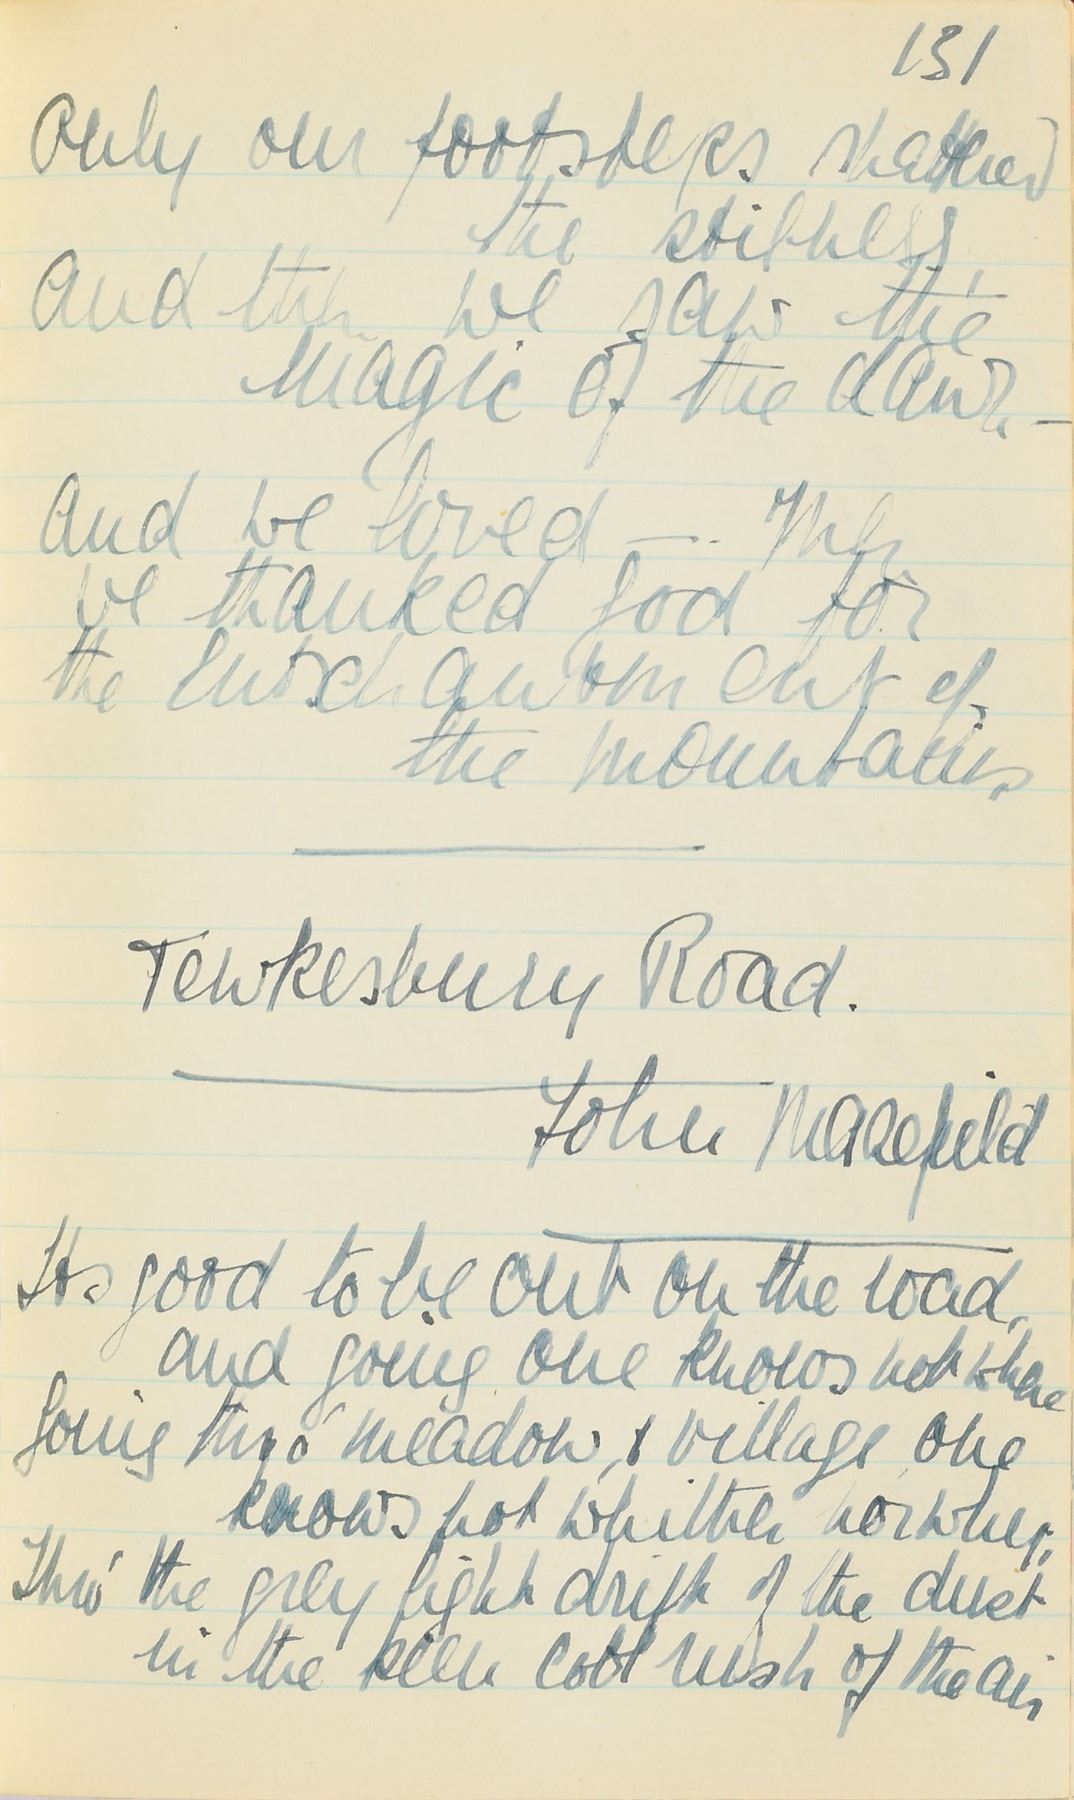 131
Only our footsteps shattered
the stillness,
And then we saw the
Magic of the dawn. —
And we loved — . Then
we thanked God for
the Entschantment of
the Mountains
Tewkesbury Road.
John Masefield
Its good to be out on the road,
and going one knows not where
Going thro' meadow, & village, one
knows not whither nor why;
Thro' the grey light drift of the dust
in the keen cool rush of the air